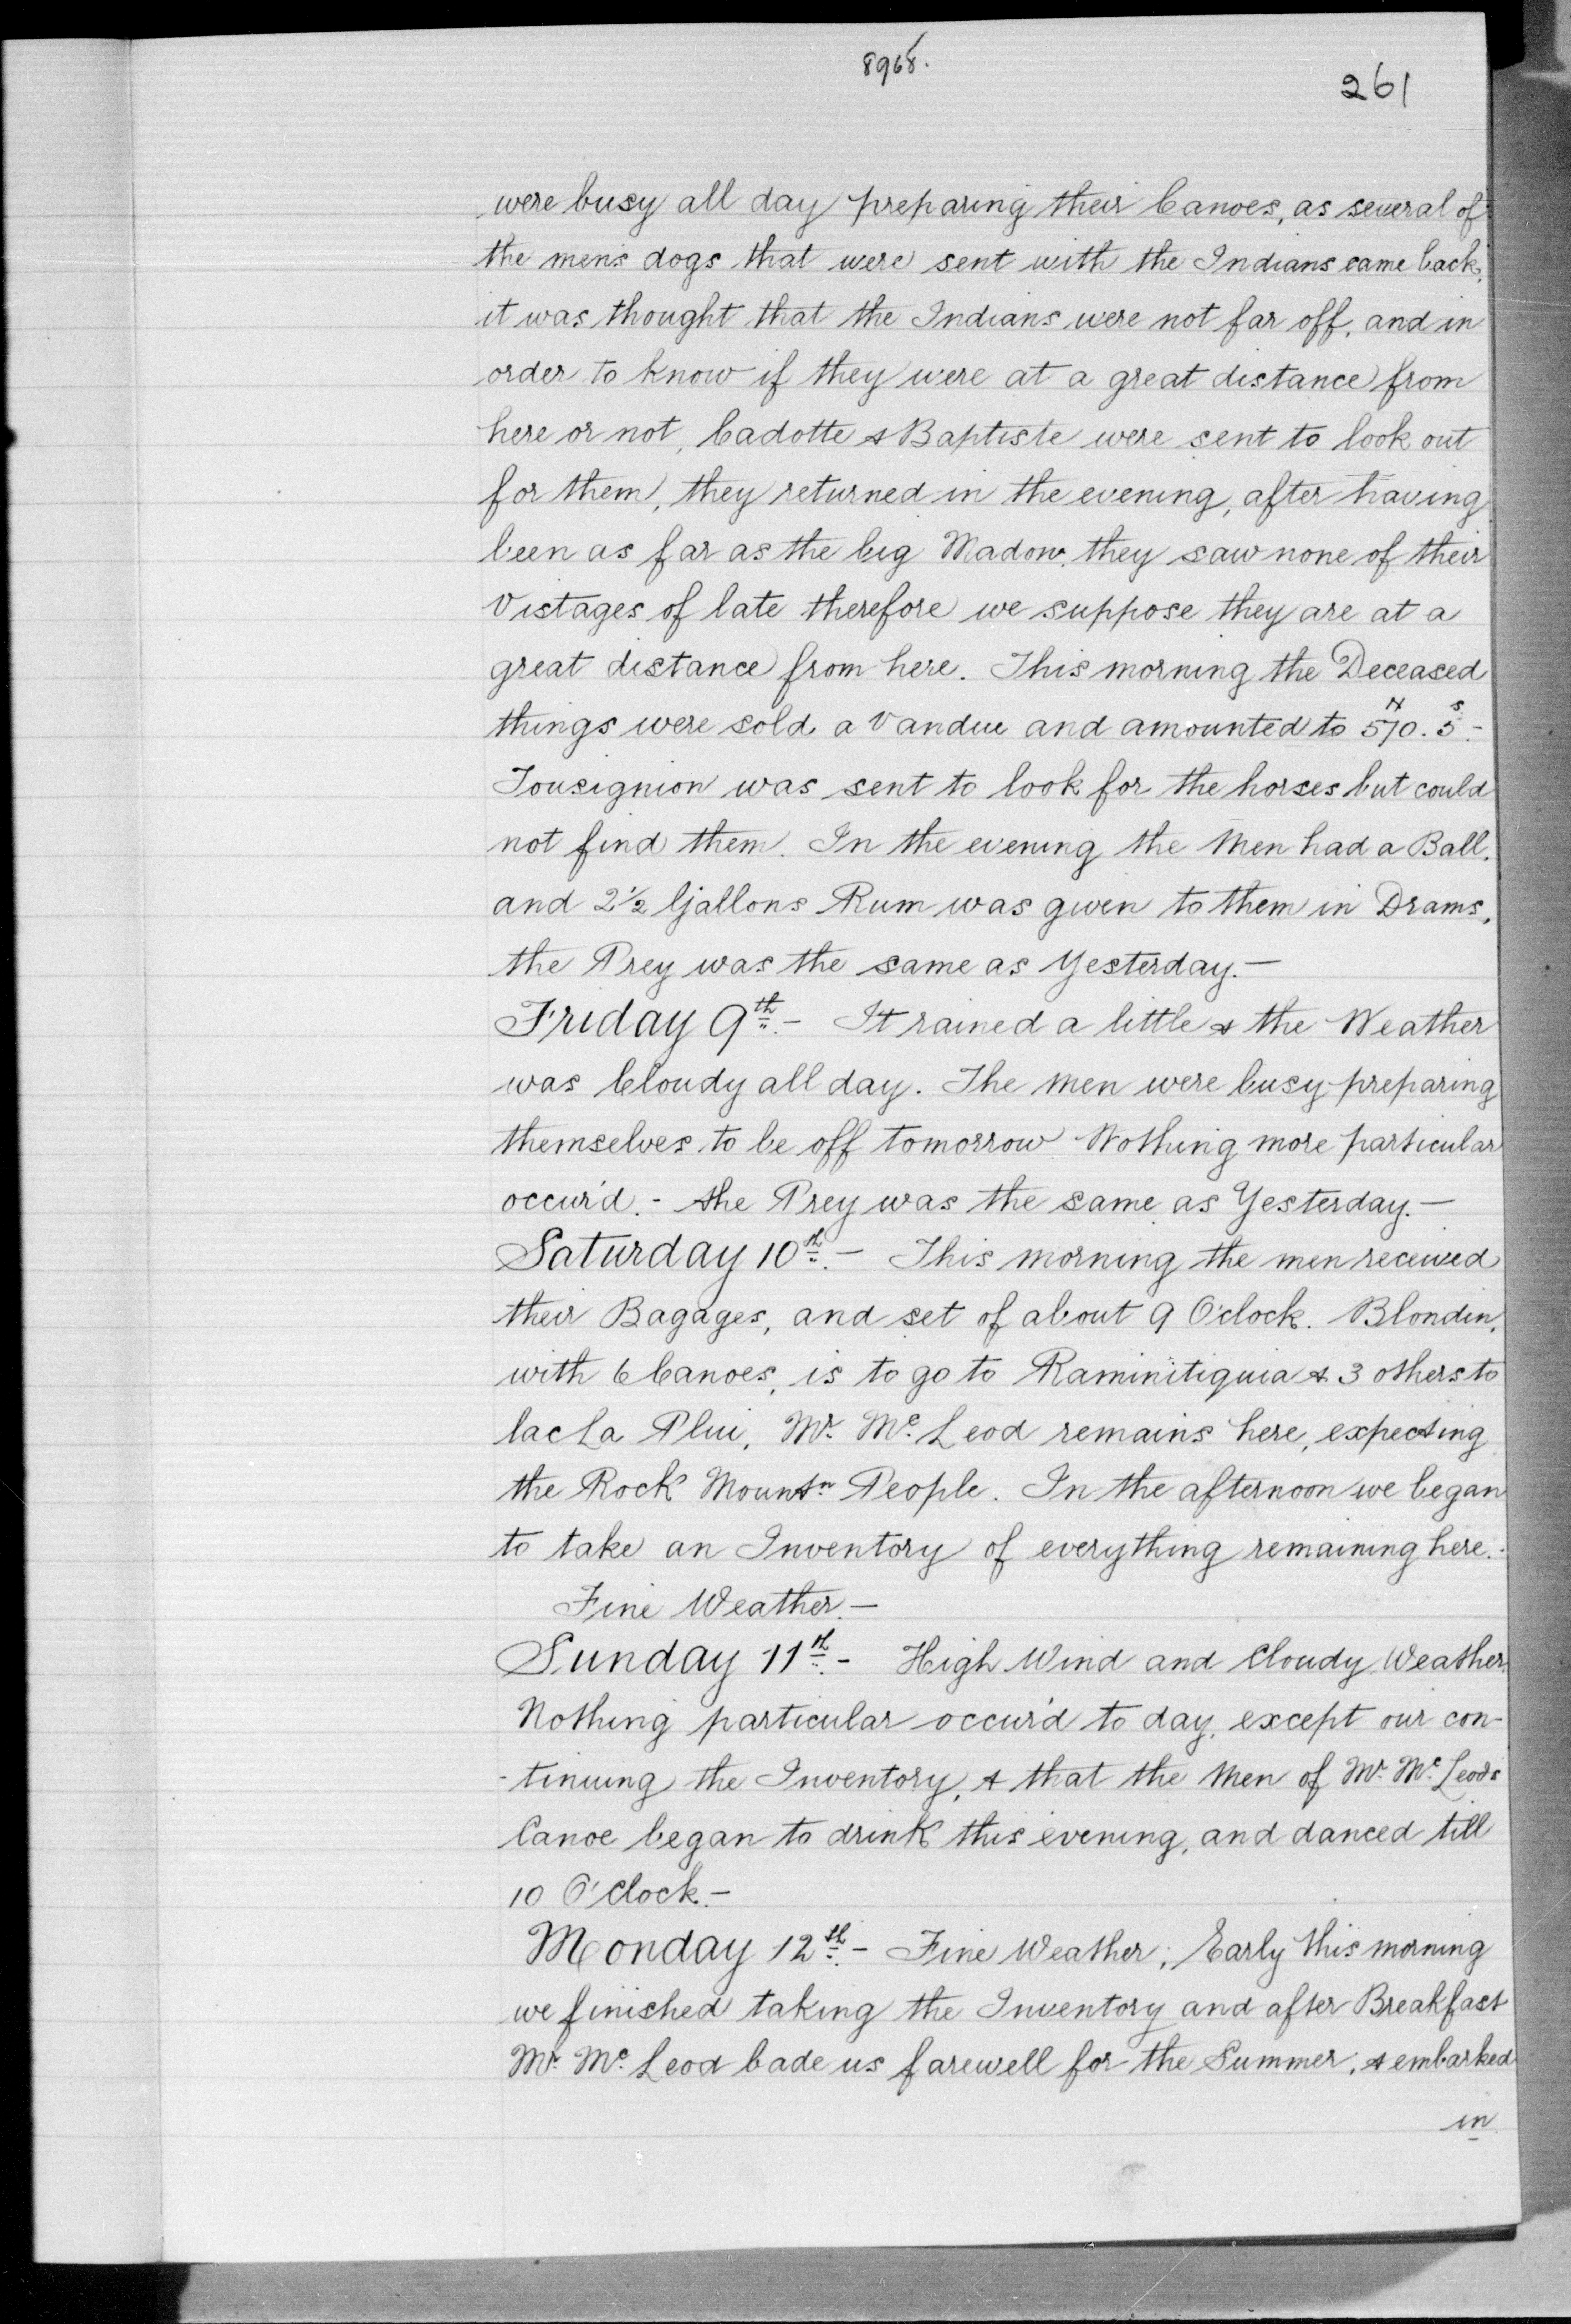 8968.
261
were busy all day preparing their Canoes, as several of
the mens dogs that were sent with the Indians came back,
it was thought that the Indians were not far off, and in
order to know if they were at a great distance from
here or not, Cadotte & Baptiste were sent to look out
for them, they returned in the evening, after having
been as far as the big Madow. they saw none of their
Vistages of late therefore we suppose they are at a
great distance from here. This morning the Deceased
things were sold a Vandue and amounted to 570. 5s.-
Tousignion was sent to look for the horses but could
not find them. In the evening the Men had a Ball.
and 2½ Gallons Rum was given to them in Drams,
the Prey was the same as Yesterday.—
Friday 9th.- It rained a little & the Weather
was Cloudy all day. The men were busy preparing
themselves to be off tomorrow. Nothing more particular
occur'd.- the Prey was the same as Yesterday.—
Saturday 10th.— This morning the men received
their Bagages, and set of about 9 O'clock. Blondin,
with 6 Canoes, is to go to Kaminitiquia & 3 others to
lac La Plui, Mr. Mc. Leod remains here, expecting
the Rock Mountn People. In the afternoon we began
to take an Inventory of everything remaining here.-
Fine Weather.—
Sunday 11th.- High Wind and Cloudy Weather.
Nothing particular occur'd to day, except our con-
-tinuing the Inventory, & that the Men of Mr. Mc. Leods
Canoe began to drink this evening, and danced till
10 O'Clock.—
Monday 12th.- Fine Weather; Early this morning
we finished taking the Inventory and after Breakfast
Mr. Mc. Leod bade us farewell for the Summer, & embarked
in